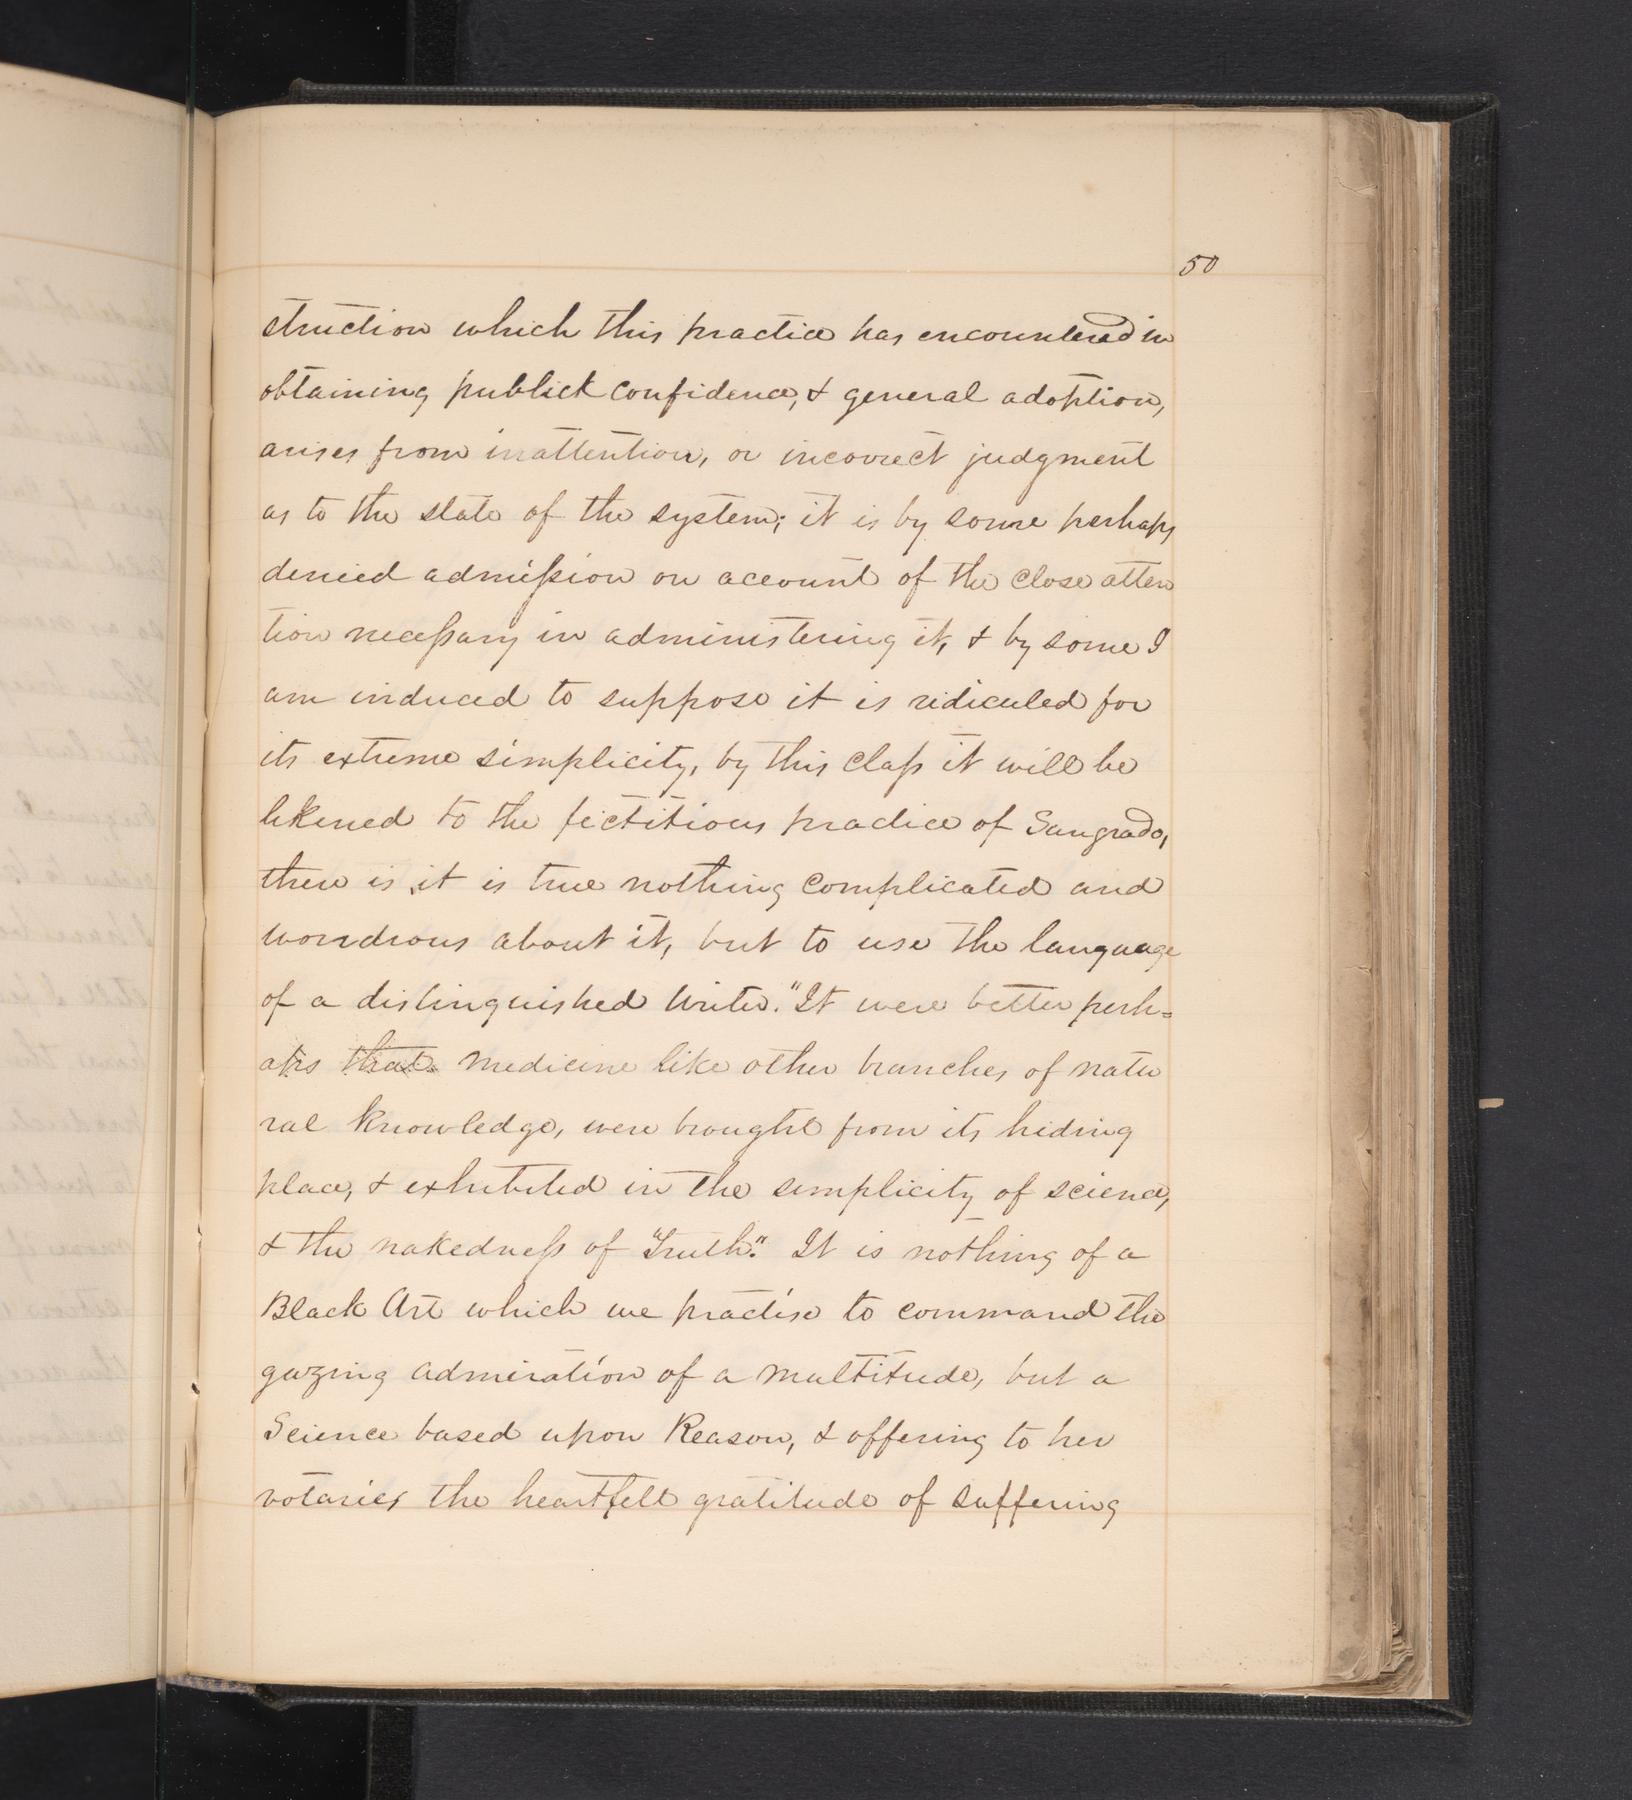 50
struction which this practice has encountered in
obtaining publick confidence, & general adoption,
arises from inattention, or incorrect judgment
as to the state of the system; it is by some perhaps
denied admission on account of the close atten
tion necessary in administering it, & by some I
am induced to suppose it is ridiculed for
its extreme simplicity, by this class it will be
likened to the fictitious practice of Sangrado,
there is, it is true nothing complicated and
wondrous about it, but to use the language
of a distinguished writer. "It were better perh=
aps that medicine like other branches of natu
ral knowledge, were brought from its hiding
place, & exhibited in the simplicity of science,
& the nakedness of "Truth." It is nothing of a
Black Art which we practise to command the
gazing admiration of a multitude, but a
Science based upon Reason, & offering to her
votaries the heartfelt gratitude of suffering